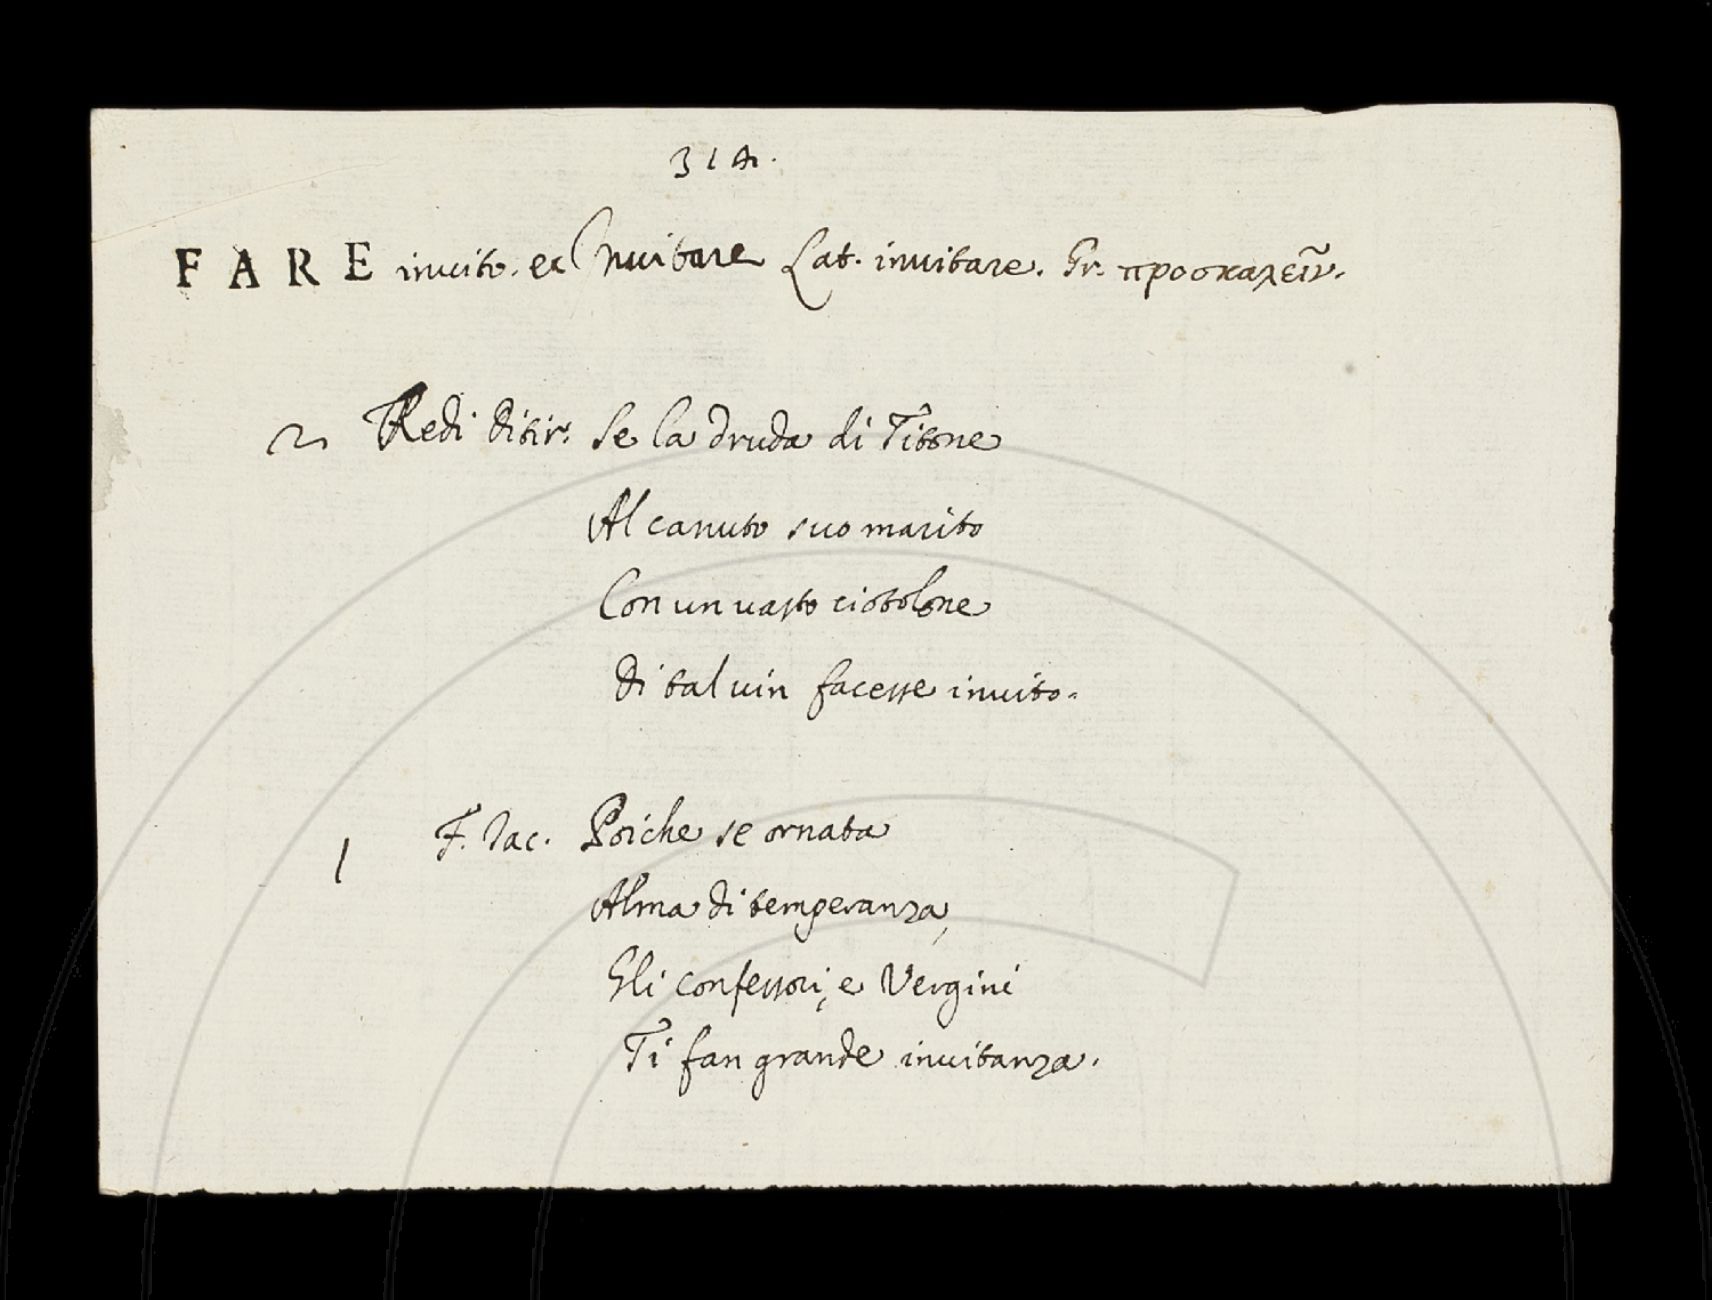 314.
FARE invito. ex Invitare Lat. invitare. Gr. προσκαλεῖν.
2 Redi Ditir. Se la druda di Titone
Al canuto suo marito
Con un vasto ciotolone
Di tal vin facesse invito.
1 F. Iac. Poiche se ornata
Alma di temperanza,
Gli confessori, e Vergini
Ti fan grande invitanza.